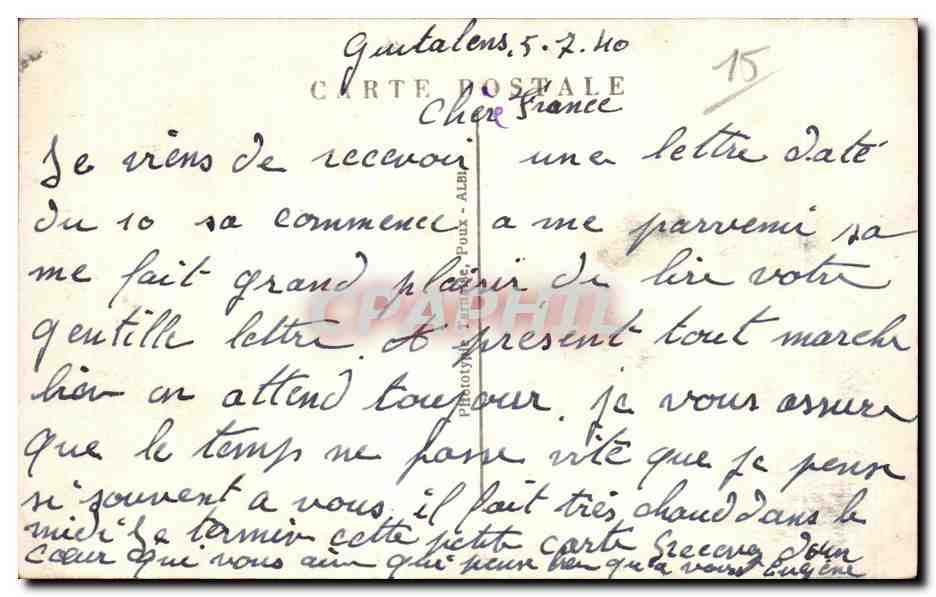 Guitalens, 5.7.40
15
CARTE POSTALE
Chere France
Je viens de recevoir une lettre daté
du 10 sa commence a me parvenir sa
me fait grand plaisir de lire votre
gentille lettre. A présent tout marche
bien on attend toujour. je vous assure
que le temp ne passe vite que je pense
si souvent a vous. il fait très chaud dans le
midi Je termine cette petite carte recevez d'un
cœur qui vous aime qui pense bien qu'a vous Eugène
Phototypie Poux - ALBI
CPAPHIL